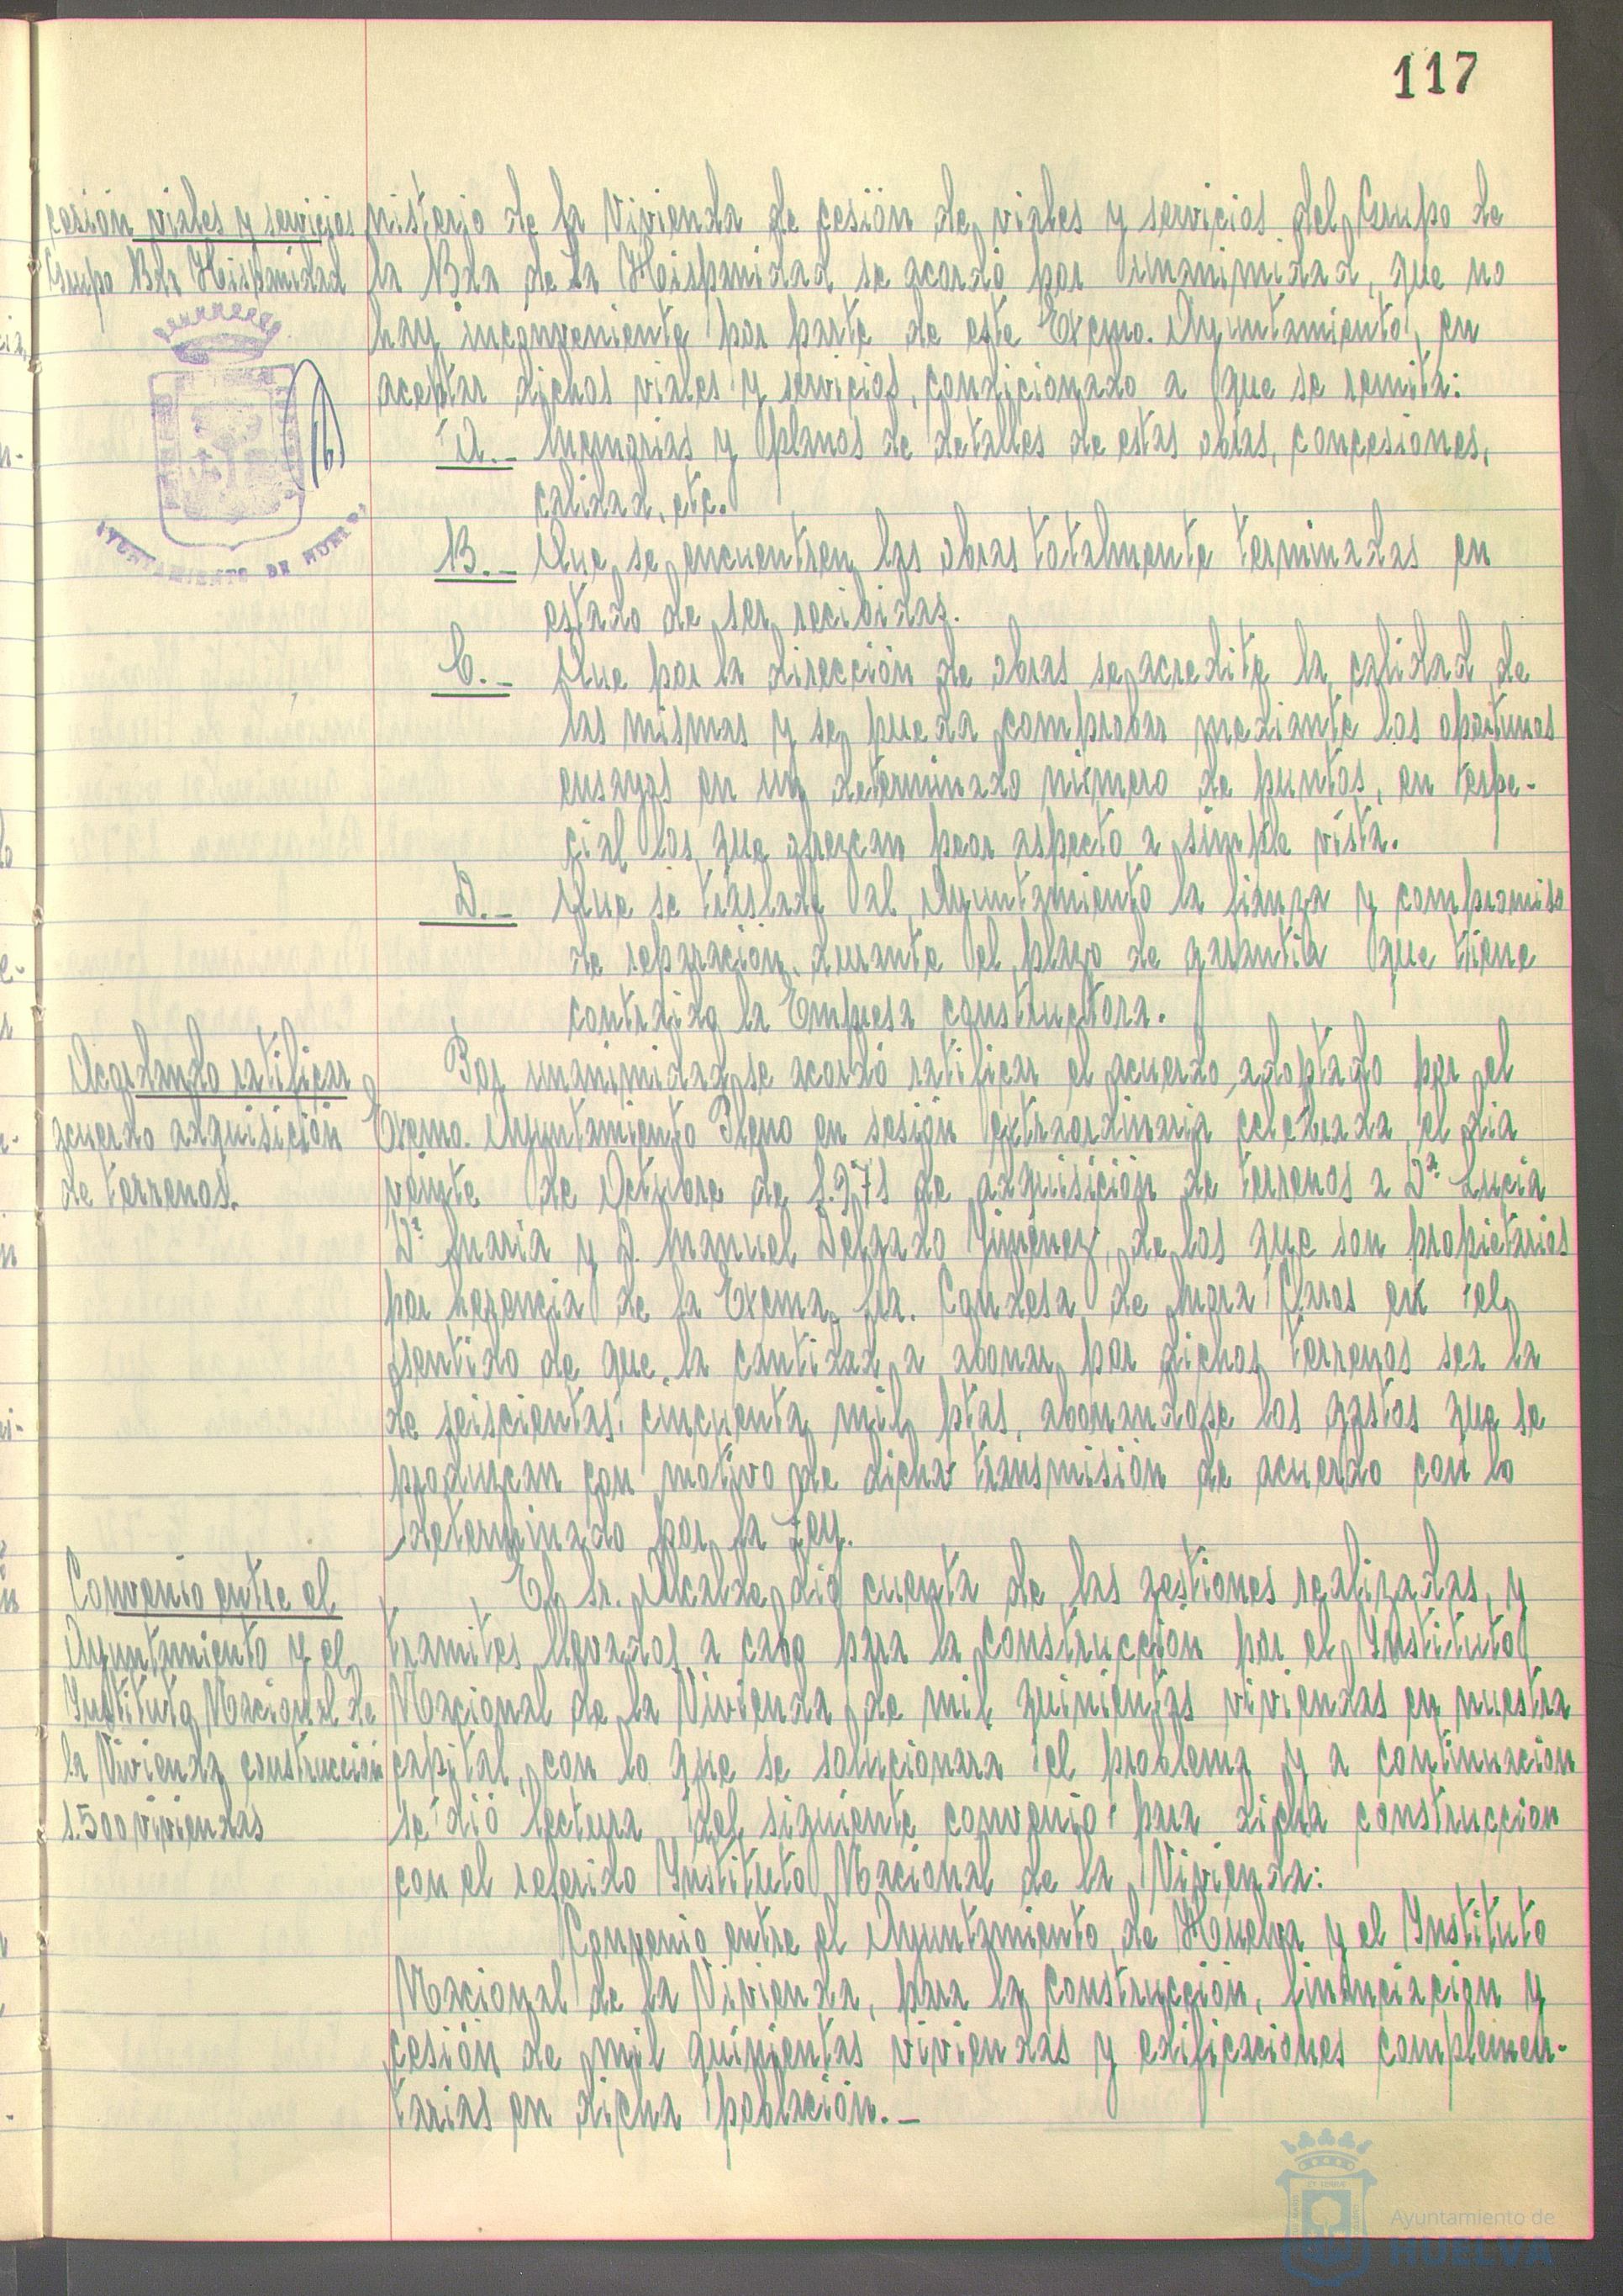 117
cesión viales y servicios
Grupo Bda Hispanidad
nisterio de la Vivienda de cesión de viales y servicios del Grupo de
la Bda de la Hispanidad se acordó por Unanimidad, que no
hay inconveniente por parte de este Excmo. Ayuntamiento, en
aceptar dichos viales y servicios, condicionado a que se remita:
A.- Memorias y planos de detalles de estas obras, concesiones,
calidad, etc.
B.- Que se encuentren las obras totalmente terminadas en
estado de ser recibidas.
C.- Que por la dirección de obras se acredite la calidad de
las mismas y se pueda comprobar mediante los oportunos
ensayos en un determinado número de puntos, en espe-
cial los que ofrezcan peor aspecto a simple vista.
D.- Que se traslade al Ayuntamiento la fianza y compromiso
de reparación durante el plazo de garantía que tiene
contraido la Empresa constructora.
AYUNTAMIENTO DE HUELVA
Acordando ratificar
acuerdo adquisición
de terrenos.
Por unanimidad se acordó ratificar el acuerdo adoptado por el
Excmo. Ayuntamiento Pleno en sesión extraordinaria celebrada el dia
veinte de Octubre de 1.971 de adquisición de terrenos a Dª Lucia
Dª Maria y D. Manuel Delgado Jiménez, de los que son propietarios
por herencia de la Excma. Sra. Condesa de Mora Claros en el
sentido de que la cantidad a abonar por dichos terrenos sea la
de seiscientas cincuenta mil ptas, abonandose los gastos que se
produzcan con motivo de dicha transmisión de acuerdo con lo
determinado por la Ley.
Convenio entre el
Ayuntamiento y el
Instituto Nacional de
la Vivienda construcción
1.500 viviendas
El Sr. Alcalde dió cuenta de las gestiones realizadas, y
tramites llevados a cabo para la construcción por el Instituto
Nacional de la Vivienda de mil quinientas viviendas en nuestra
capital, con lo que se solucionara el problema y a continuacion
se dió lectura del siguiente convenio para dicha construccion
con el referido Instituto Nacional de la Vivienda:
Convenio entre el Ayuntamiento de Huelva y el Instituto
Nacional de la Vivienda, para la construcción, financiacion y
cesión de mil quinientas viviendas y edificaciones complemen-
tarias en dicha población.-
Ayuntamiento de
HUELVA